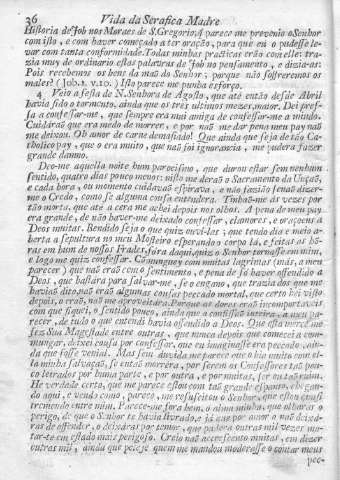 36 Vida da Serafica Madre
Historia de Job nos Moraes de S. Gregorio; & parece me prevenio o Senhor
com isto, e com haver começado a ter oração, para que eu o pudesse le-
var com tanta conformidade. Todas minhas practicas erão com elle: tra-
zia muy de ordinario estas palavras de Job no pensamento, e dizia-as:
Pois recebemos os bens da mão do Senhor; porque não sofreremos os
males? (Job. 2. v. 10.) Isto parece me punha esforço.
4 Veio a festa de N. Senhora de Agosto, que até então desde Abril
havia sido o tormento, ainda que os tres ultimos mezes, maior. Dei pres-
sa a confessar-me, que sempre era mui amiga de confessar-me a miudo.
Cuidárão que era medo de morrer, e por não me dar pena meu pay não
me deixou. Oh amor de carne demasiado! Que ainda que seja de tão Ca-
tholico pay, que o era muito, que não foi ignorancia, me pudera fazer
grande damno.
Deo-me aquella noite hum parocismo, que durou estar sem nenhum
sentido, quatro dias pouco menos: nisto me derão o Sacramento da Unção,
e cada hora, ou momento cuidavão espirava, e não fazião senão dizer-
me o Credo, como se alguma cousa entendera. Tinhão-me ás vezes por
tão morta, que até a cera me achei depois nos olhos. A pena de meu pay
era grande, de não haver-me deixado confessar, clamores, e orações a
Deos muitas. Bendito seja o que quiz ouvi-las; que tendo dia e meio a-
berta a sepultura no meu Mosteiro esperando o corpo lá, e feitas as hó-
ras em hum de nossos Frades, fóra daqui, quiz o Senhor tornasse em mim,
e logo me quiz confessar. Comunguey com muitas lagrimas (más, a meu
parecer) que não erão com o sentimento, e pena de só haver offendido a
Deos, que bastára para salvar-me, se o engano, que trazia dos que me
havião dito, não erão algumas cousas peccado mortal, que certo hei visto
depois, o erão, não me aproveitára. Porque as dores erão incomportaveis
com que fiquei, o sentido pouco, ainda que a confissão inteira, a meu pa-
recer, de tudo o que entendi havia offendido a Deos. Que esta mercê me
fez Sua Magestade entre outras, que nunca depois que comecei a com-
mungar, deixei cousa por confessar, que eu imaginasse era peccado, ain-
da que fosse venial. Mas sem duvida me parece que o hia muito com el-
la minha salvação, se então morrera, por serem os Confessores tão pou-
co letrados por huma parte, e por outra, e por muitas, ser eu tão ruim.
He verdade certo, que me parece estou com tão grande espanto, chegan-
do aqui, e vendo como, parece, me resuscitou o Senhor, que estou quasi
tremendo entre mim. Parece-me fora bem, ó alma minha, que olháras o
perigo, de que o Senhor te havia livrado, e já que por amor o não deixá-
ras de offender, o deixáras por temor, que pudera outras mil vezes ma-
tar-te em estado mais perigoso. Creio não accrescento muitas, em dizer
outras mil, ainda que peleje quem me mandou moderasse o contar meus
pec-